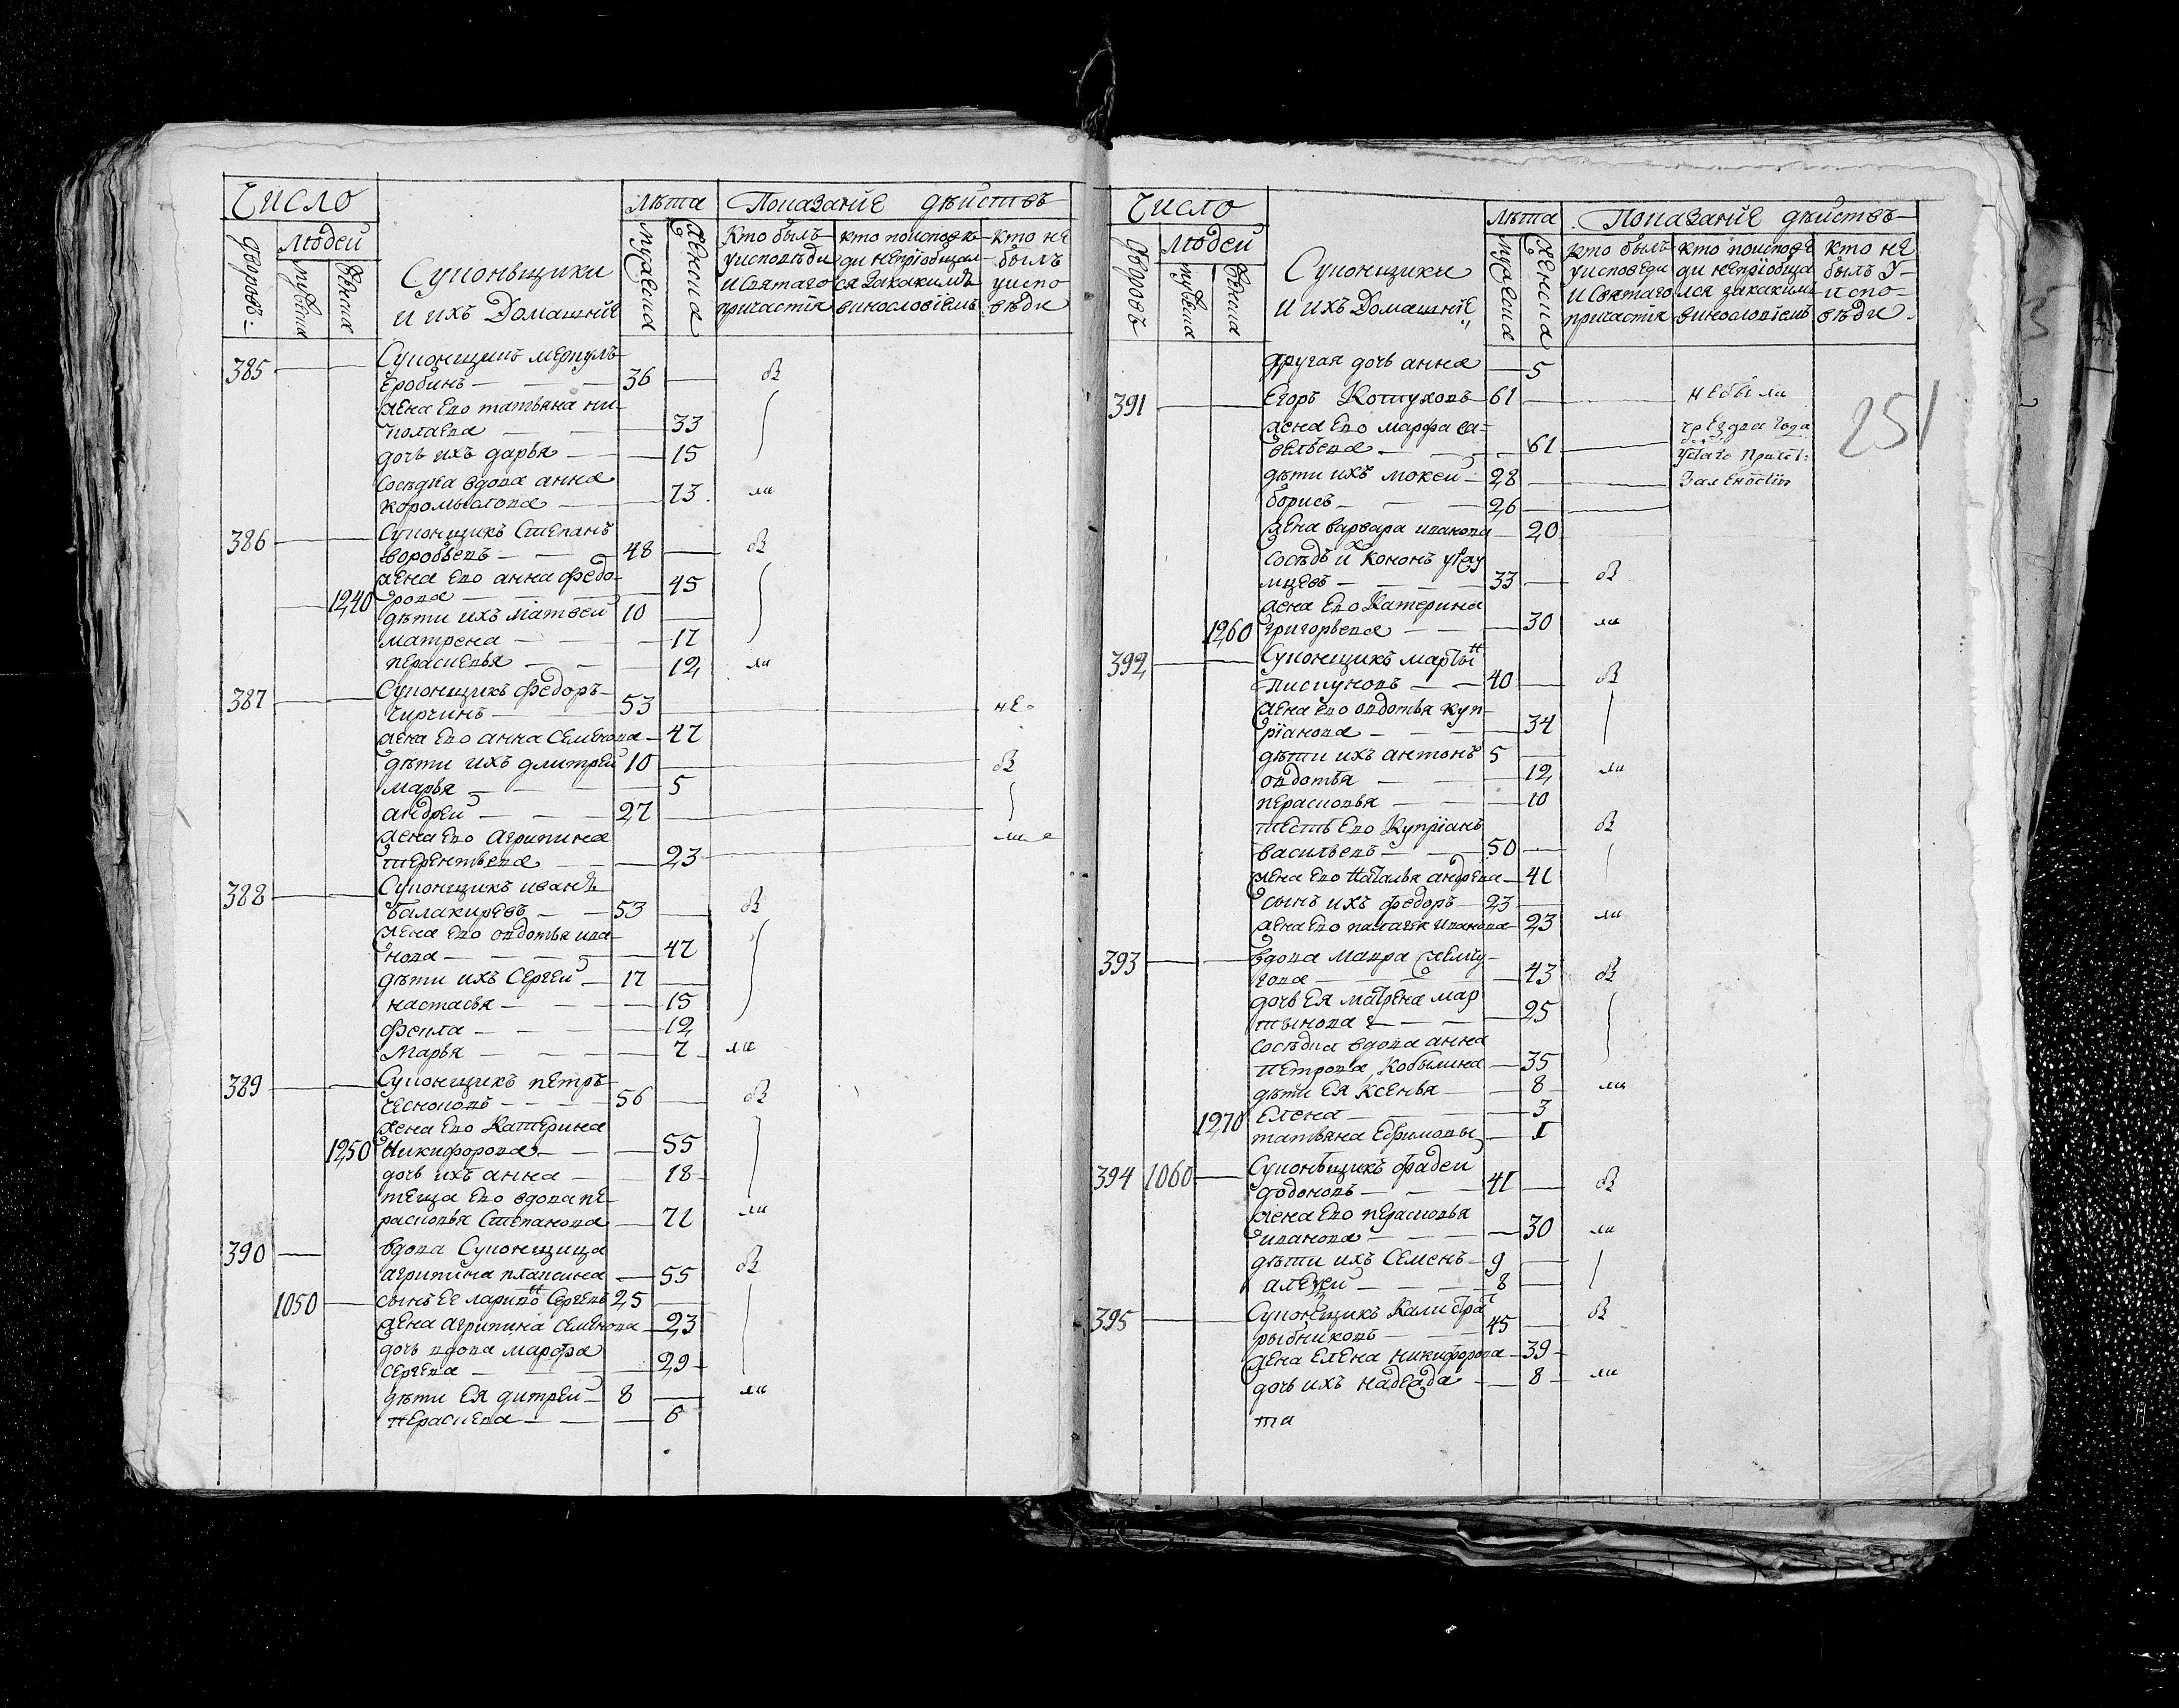 Число
Людей
Дворовъ
мужеска
женска
Суконьщики
и ихъ Домашнїе
Лѣта
мужеска
женска
Показанїе дѣиствъ
Кто былъ
уисповѣди
и Святаго
причастїя
кто поисповѣ
ди непрїобщал
ся закакимъ
винословїемъ
кто не
былъ
уиспо
вѣди
385 Суконщикъ меркулъ
еробинъ 36 бы
жена ево татьяна ни
колаева 33
дочь ихъ дарья 15
сосѣдка вдова анна
коромыслова 73 ли
386 Суконщикъ Степанъ
воробьевъ 48 бы
жена ево анна федо
рова 45
1240 дѣти ихъ матвеи 10
матрена 17
парасковья 12 ли
387 Суконщикъ федоръ
чирчинъ 53 не
жена ево анна семенова 47
дѣти ихъ дмитреи 10 бы
марья 5
андреи 27
жена ево агрипина ли
терентьева 23
388 Суконщикъ иванъ
балакиревъ 53 бы
жена ево овдотья ива
нова 47
дѣти ихъ сергеи 17
настасья 15
фекла 12
марья 7 ли
389 Суконщикъ петръ
чесноковъ 56 бы
жена ево катерина
1250 никифорова 55
дочь ихъ анна 18
теща ево вдова па
расковья степанова 71 ли
390 вдова Суконщица
агрипина плаксина 55 бы
1050 сынъ ее ларионъ сергеевъ 25
жена агрипина семенова 23
дочь вдова марфа
сергеева 29
дѣти ея дитреи 8 ли
6
Число
Людей
Дворовъ
мужеска
женска
Суконщики
и ихъ Домашнїе
Лѣта
мужеска
женска
Показанїе дѣиствъ
кто былъ
уисповеди
и Святаго
причастїя
кто поисповѣ
ди непрїобща
лся закакимъ
винословїемъ
кто не
былъ у
испо
вѣди
другая дочь анна 5
251
391 Егоръ Котуховъ 61 небыли
жена ево марфа са чрез два года
вельева 61
дѣти ихъ мокеи 28 За леностїю
борисъ 26
жена варвара иванова 20
сосѣдъ ихъ кононъ
33 бы
жена ево катерина
1260 григорьева 30 ли
392 Суконщикъ мартын
пискуновъ 40 бы
жена ево овдотья куп
рїанова 34
дѣти ихъ антонъ 5
овдотья 12 ли
парасковья 10
тесть ево купрїанъ бы
васильевъ 50
жена ево наталья андреева 41
сынъ ихъ федоръ 23
жена ево палагея иванова 23 ли
393 вдова мавра
43 бы
дочь ея матрена мар
тынова 25
сосѣдка вдова анна
петрова кобылина 35
дѣти ея ксенья 8 ли
1270 елена 3
татьяна ефимовы 1
394 1060 Суконьщикъ фадеи
додоновъ 41 бы
жена ево парасковья
иванова 30 ли
дѣти ихъ семенъ 9
алексеи 8
395 Суконщикъ калистрат
рыбниковъ 45 бы
жена елена никифорова 39
дочь ихъ надежда 8 ли
та